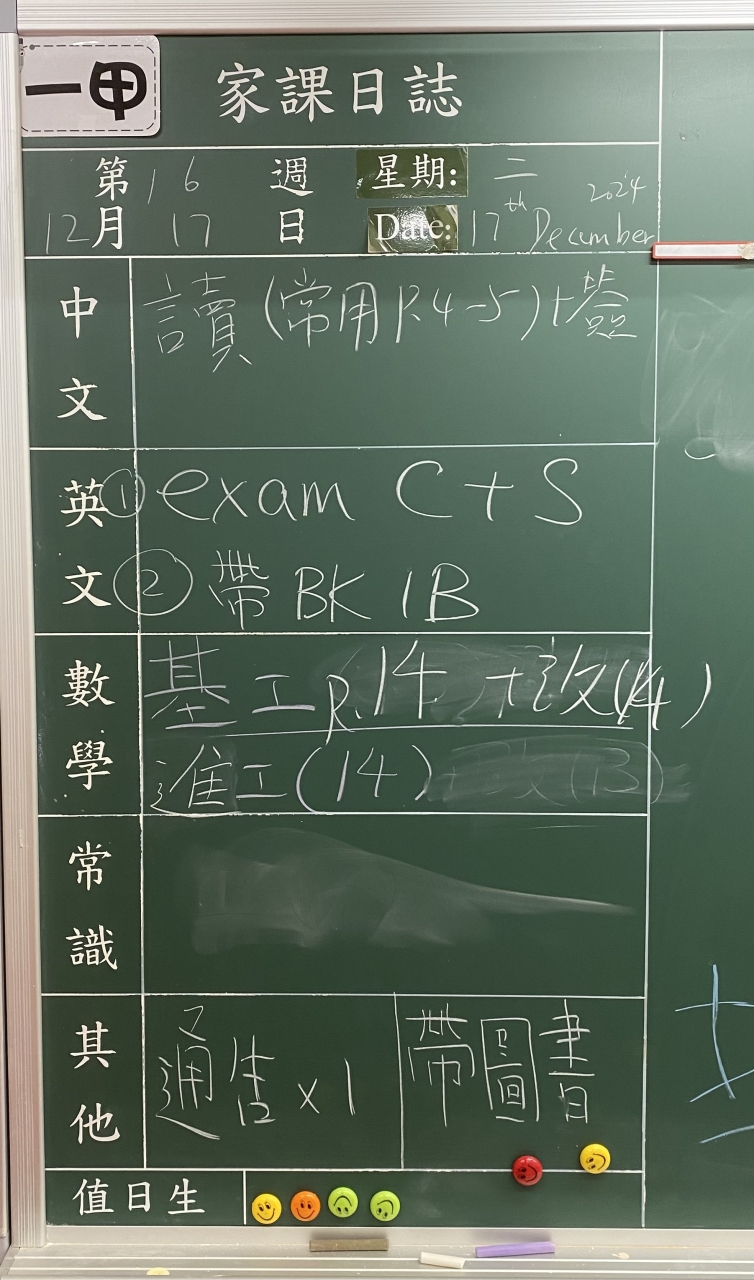 一甲
家課日誌
第16週 星期: 二
12月17日 Date: 17th December 2024
中文 讀(常用P.4-5)+簽
英文 ① exam C+S
② 帶BK 1B
數學 基工P.14 +改(14)
進工(14)
常識
其他 通告x1 帶圖書
值日生